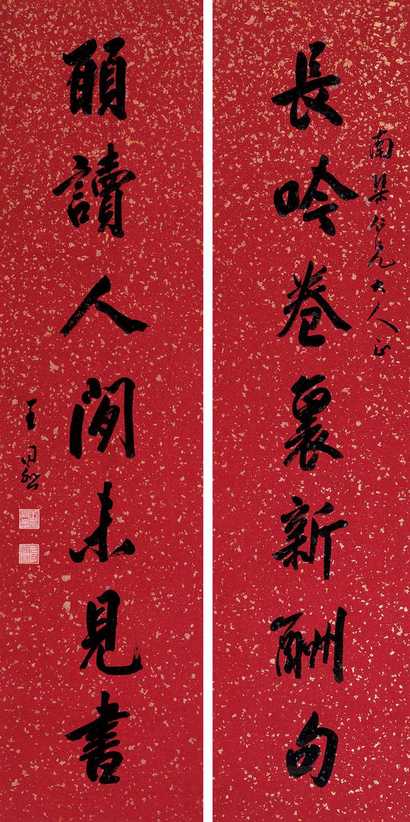 南渠仁兄大人正
長吟卷裏新酬句
願讀人間未見書
王同愈